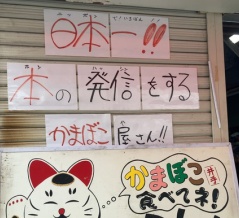 日本一!!
本の発信をする
かまぼこ屋さん!!
かまぼこ
食べてネ!